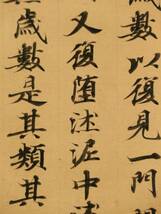 數以復見一門
又復堕淤泥中
歲數是其類其